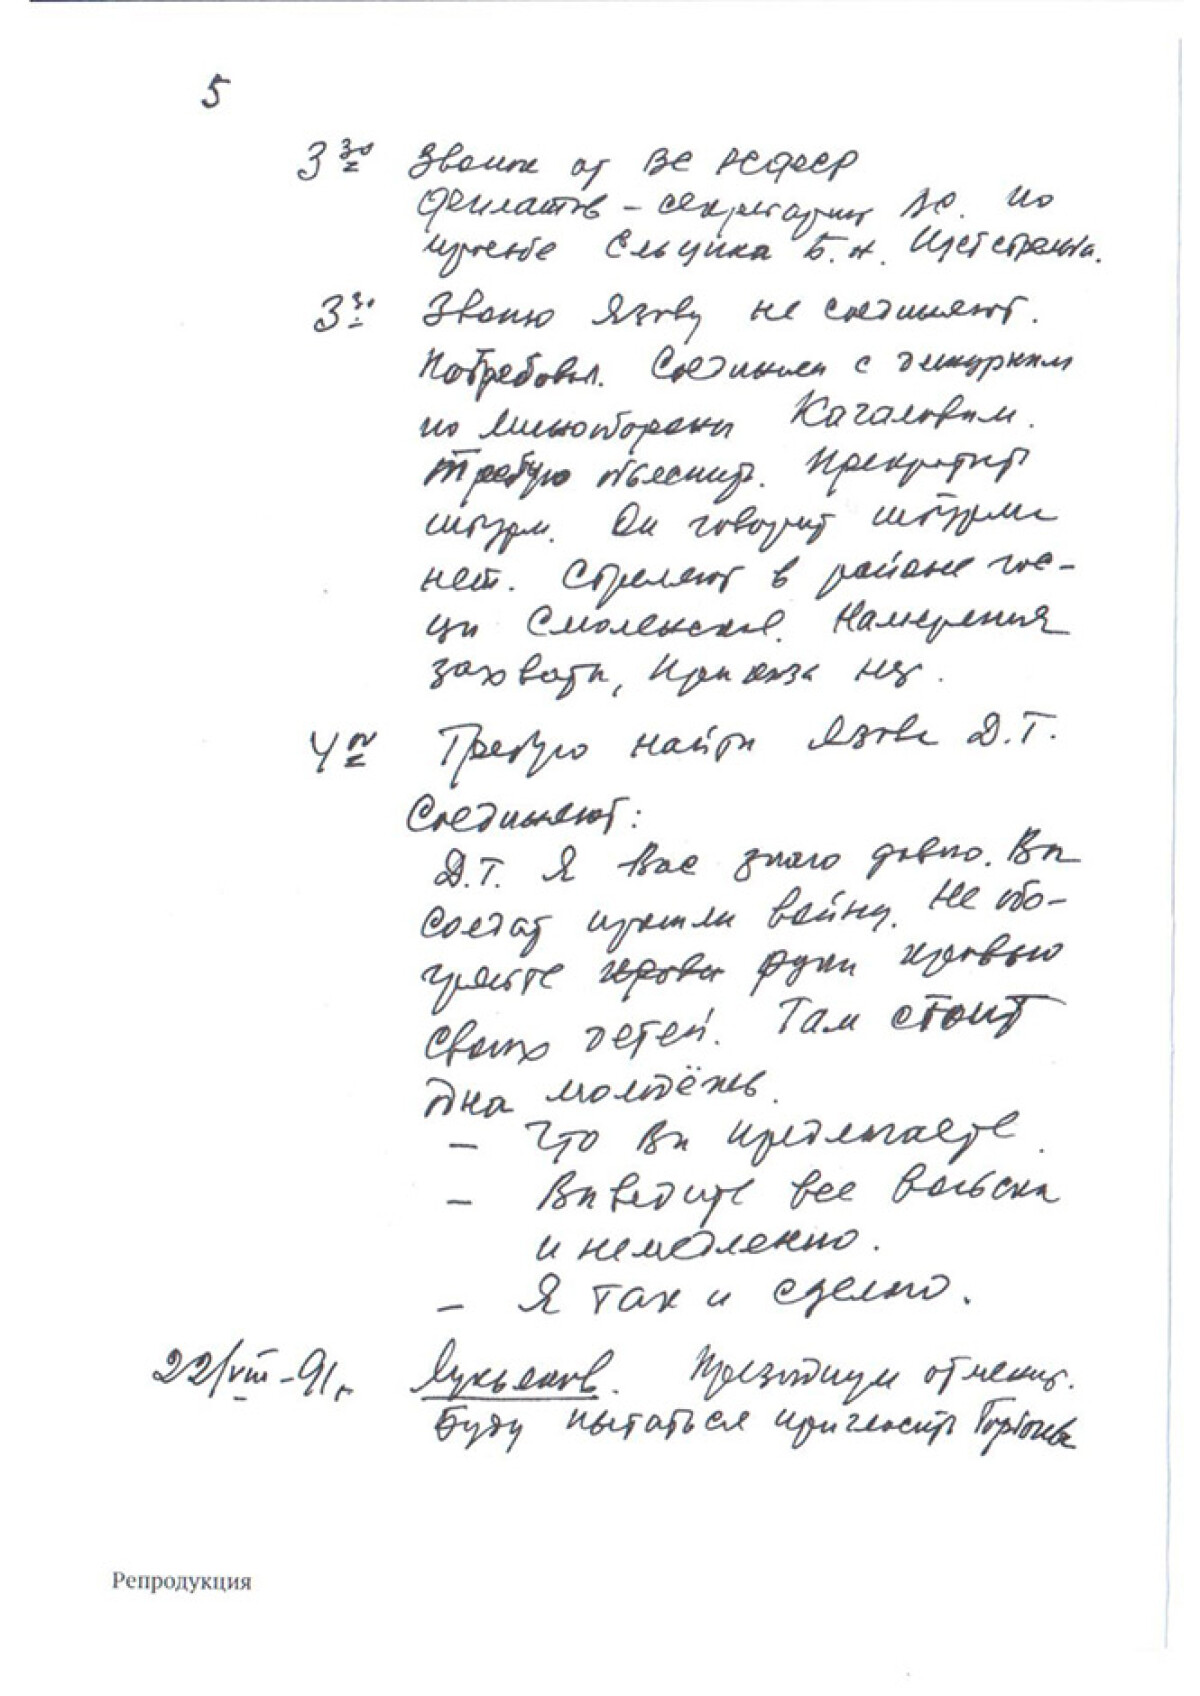 5
3 30 Звонок от ВС РСФСР
Филатов – секретариат ВС. По
просьбе Ельцина Б.Н. Идет стрельба.
3 30 Звоню Язову не соединяют.
Потребовал. Соединили с дежурным
по Минобороны Качаловым.
Требую объяснить. Прекратить
штурм. Он говорит штурма
нет. Стреляют в районе гос-
цы Смоленская. Намерения
захвати, приказа нет.
4 00 Требую найти Язова Д.Т.
Соединяют:
Д.Т. Я Вас знаю давно. Вы
солдат прошли войну. Не обо-
грейте крови руки кровью
своих детей. Там стоит
одна молодёжь.
– Что Вы предлагаете.
– Выведите все войска
и немедленно.
– Я так и сделаю.
22/VIII-91г. Лукьянов. Президиум отменит.
Буду пытаться пригласить
Репродукция